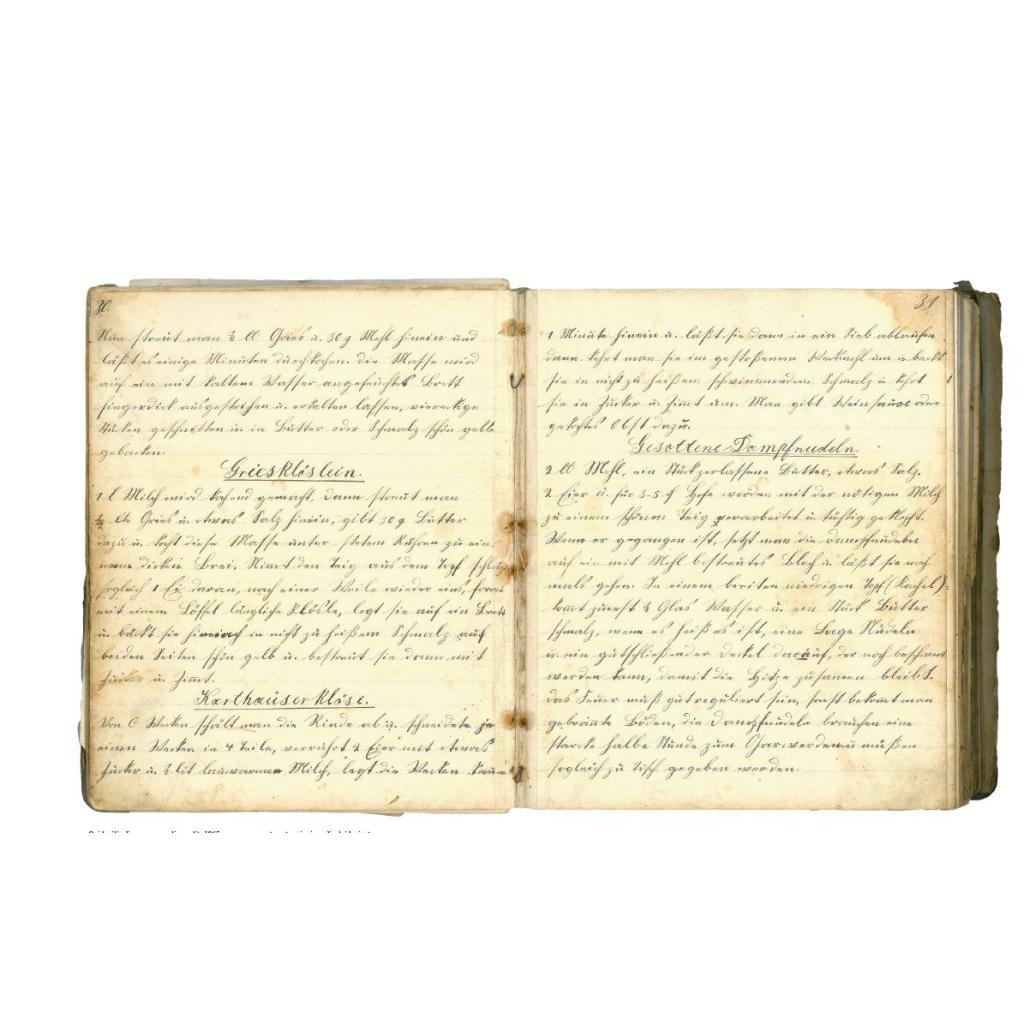 30.
Nun streut man ½ ℔ Gries u. 30 g Mehl hinein und
läßt es einige Minuten durchkochen. Die Masse wird
auf ein mit kaltem Wasser angefeuchtes Brett
fingerdick ausgestrichen u. erkalten lassen, viereckige
Stücken geschnitten u. in Butter oder Schmalz schön gelb
gebacken.
Griesklöslein.
1 l Milch wird kochend gemacht, dann streut man
Gries u. etwas Salz hinein, gibt 30 g Butter
dazu u. kocht diese Masse unter stetem Rühren zu ein
nem dicken Brei. Nimmt den Teig aus dem Topf schlägt
sogleich 1 Ei daran, nach einer Weile wieder eins, formt
mit einem Löffel längliche Klösle, legt sie auf ein Brett
u. bäckt sie hienach in nicht zu heißem Schmalz auf
beiden Seiten schön gelb u. bestreut sie dann mit
Zucker u. Zimmt.
Karthäuserklöse.
Von 6 Wecken schält man die Rinde ab u. schneidet je
einen Wecken in 4 Teile, verrührt 2 Eier mit etwas
Zucker u. ½ Lit lauwarmen Milch, legt die Wecken kaum
31
1 Minute hinein u. läßt sie dann in ein Sieb ablaufen
dann kehrt man sie im gestoßenem Weckmehl um u. backt
sie in nicht zu heißem schwimmendem Schmalz u. kehrt
sie in Zucker u. Zimt um. Man gibt Weinsauce oder
gekochtes Obst dazu.
Gesottene Dampfnudeln.
2 ℔ Mehl, ein Stück zerlassene Butter, etwas Salz.
2 Eier u. für 3-5 ₰ Hefe werden mit der nötigen Milch
zu einem schönen Teig verarbeitet u. tüchtig geklopft.
Wenn er gegangen ist, setzt man die Dampfnudeln
auf ein mit Mehl bestreutes Blech u. läßt sie noch
mals gehen. In einem breiten niedrigen Topf (Kachel)
kommt zuerst Glas Wasser u. ein Stück Butter
schmalz, wenn es heiß es ist, eine Lage Nudeln
u. ein gutschließender Deckel darauf, der noch beschwert
werden kann, damit die Hitze zusamen bleibt.
Das Feuer muß gut reguliert sein, sonst bekomt man
gebrannte Böden, die Dampfnudeln brauchen eine
starke halbe Stunde zum Garwerden u. müßen
sogleich zu Tisch gegeben werden.